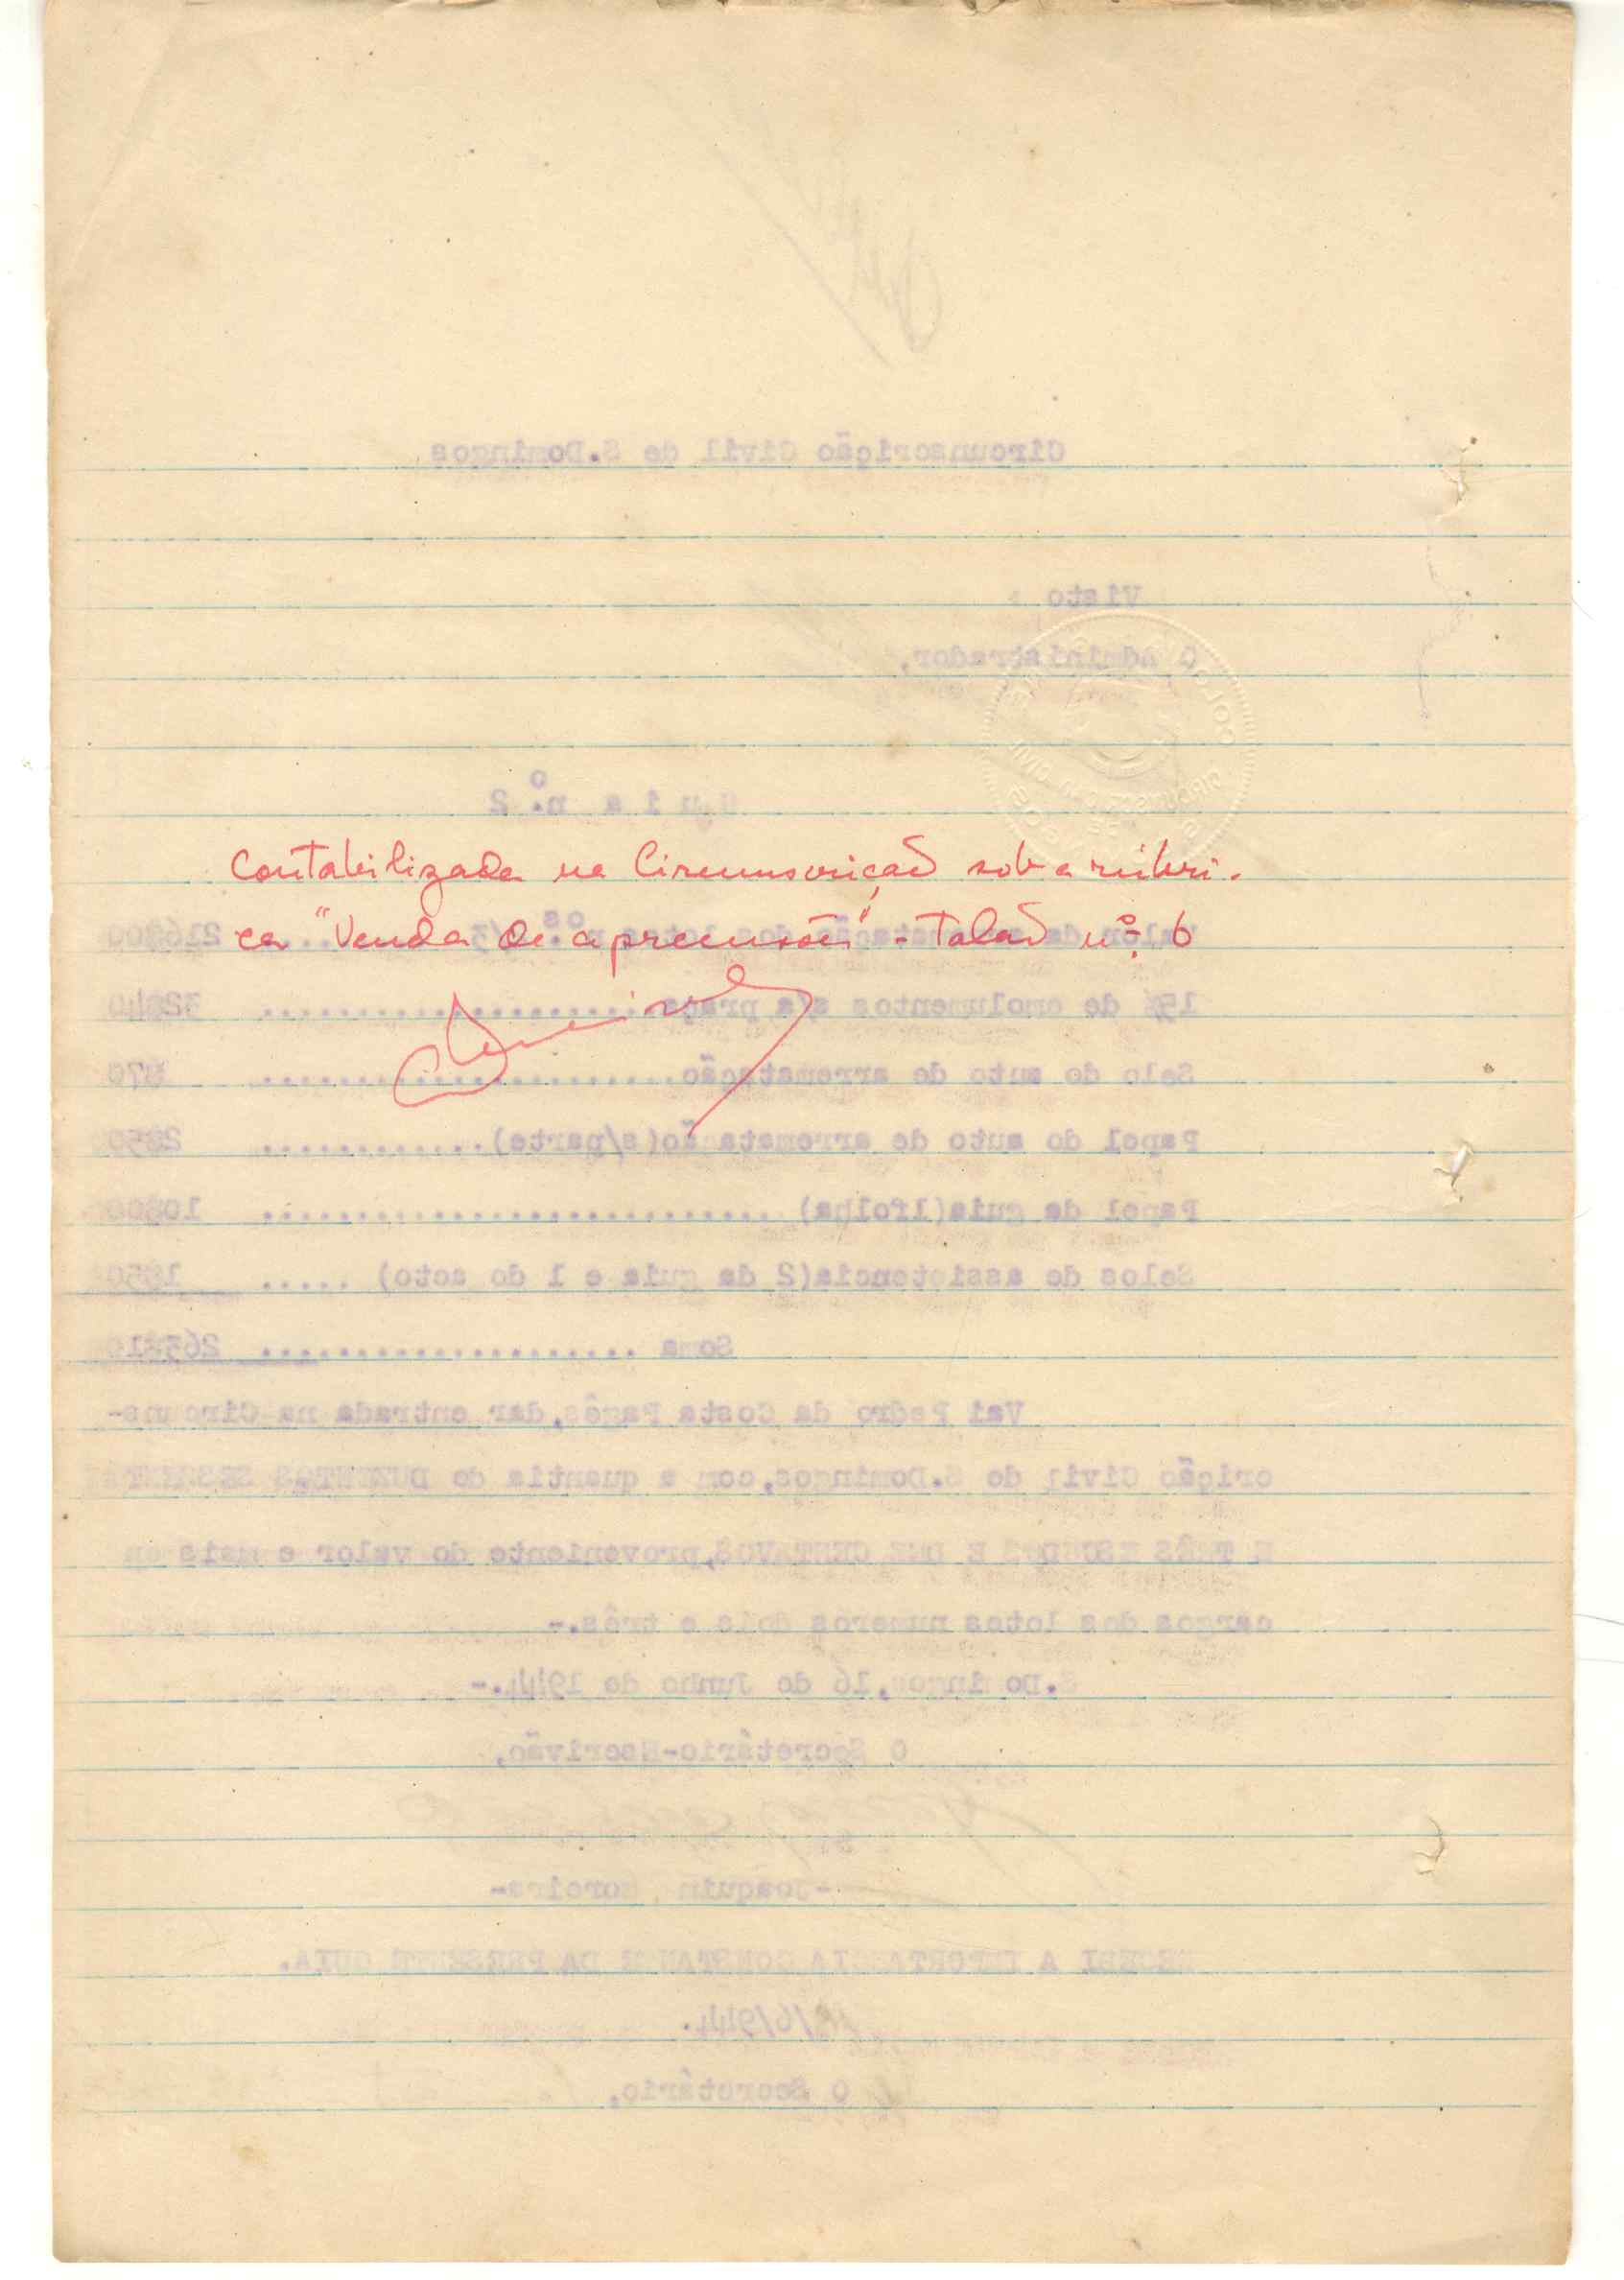 Circunscrição Civil de S.Domingos
Visto
O Administrador,
G u i a nº. 2
Contabilizada na Circumscrição sob a rubri-
ca "Venda de apreensões" - Talão nº 6
Valor da arrematação dos lotes nºs. 2/3 ... 216$00
15% de emolumentos s/a praça .................... 32$40
Selo do auto de arrematação...................... $70
Papel do auto de arrematação(s/parte)............ 2$50
Papel da guia(1folha) ........................... 10$00
Selos de assistencia(2 da guia e 1 do acto) ..... 1$50
Soma .................... 263$10
Vai Pedro da Costa Pagês,dar entrada na Circuns-
crição Civil de S.Domingos,com a quantia de DUZENTOS SESSENTA
E TRÊS ESCUDOS E DEZ CENTAVOS,proveniente do valor e mais en
cargos dos lotes numeros dois e três.-
S.Domingos,16 de Junho de 1944.-
O Secretário-Escrivão,
-Joaquim Moreira-
RECEBI A IMPORTANCIA CONSTANTE DA PRESENTE GUIA.
/6/944.
O Secretário,